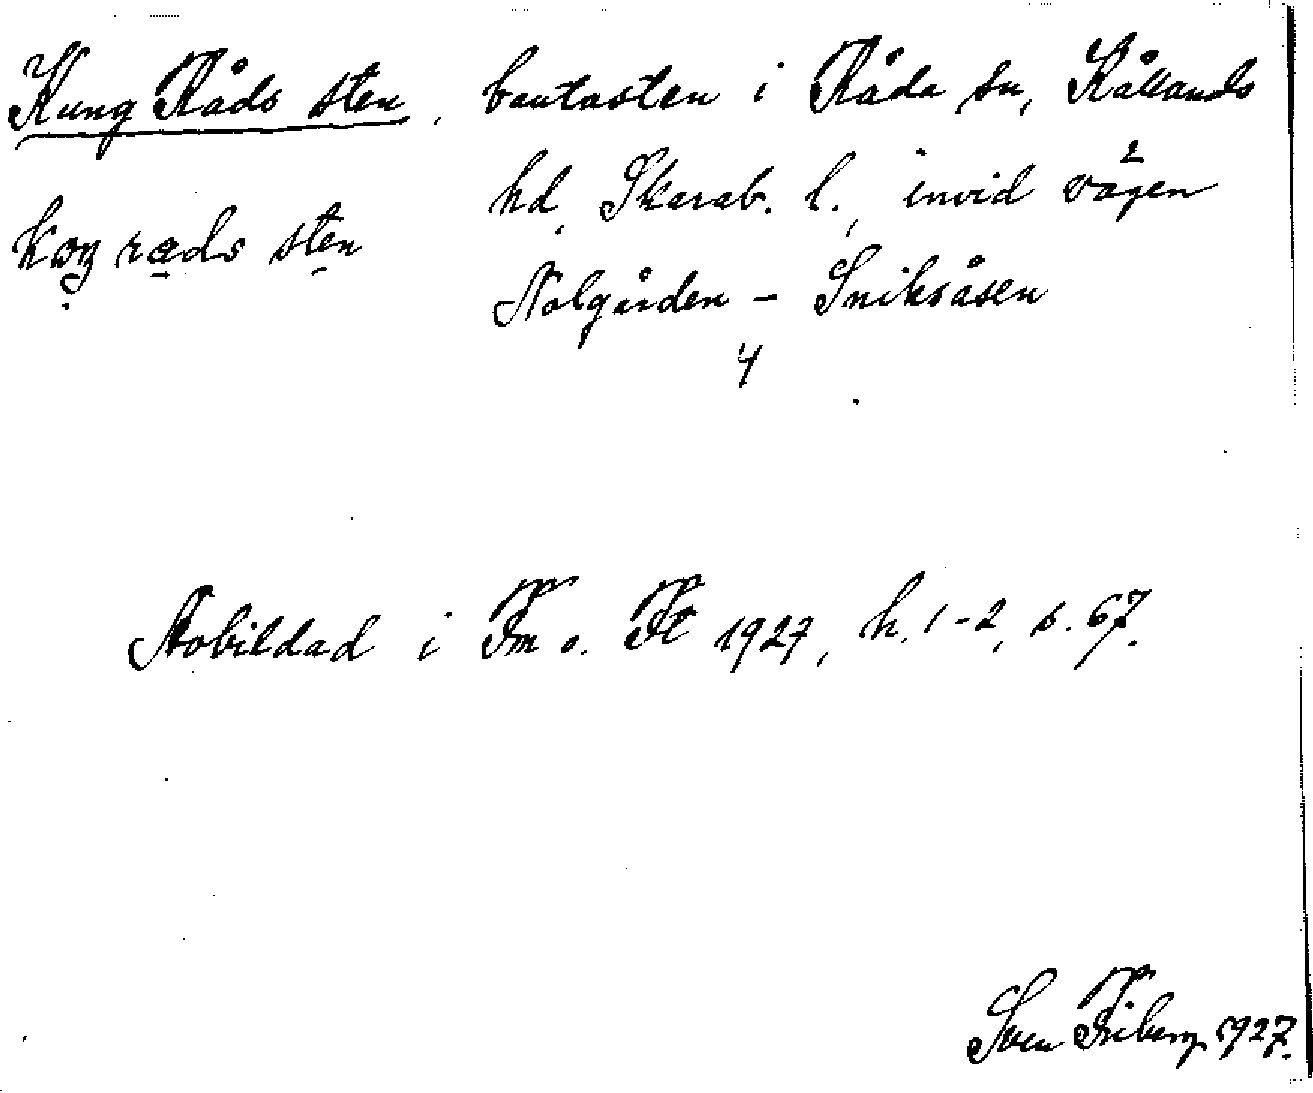 Kung Råds sten, bautasten i Råda sn, Kållands
hd, Skarab. l., invid vägen
2
koŋ rads sten
Nolgården - Sniksåsen
4
Avbildad i Fm o. Ft 1927, h. 1-2, s. 67.
Sven Friberg 1927.